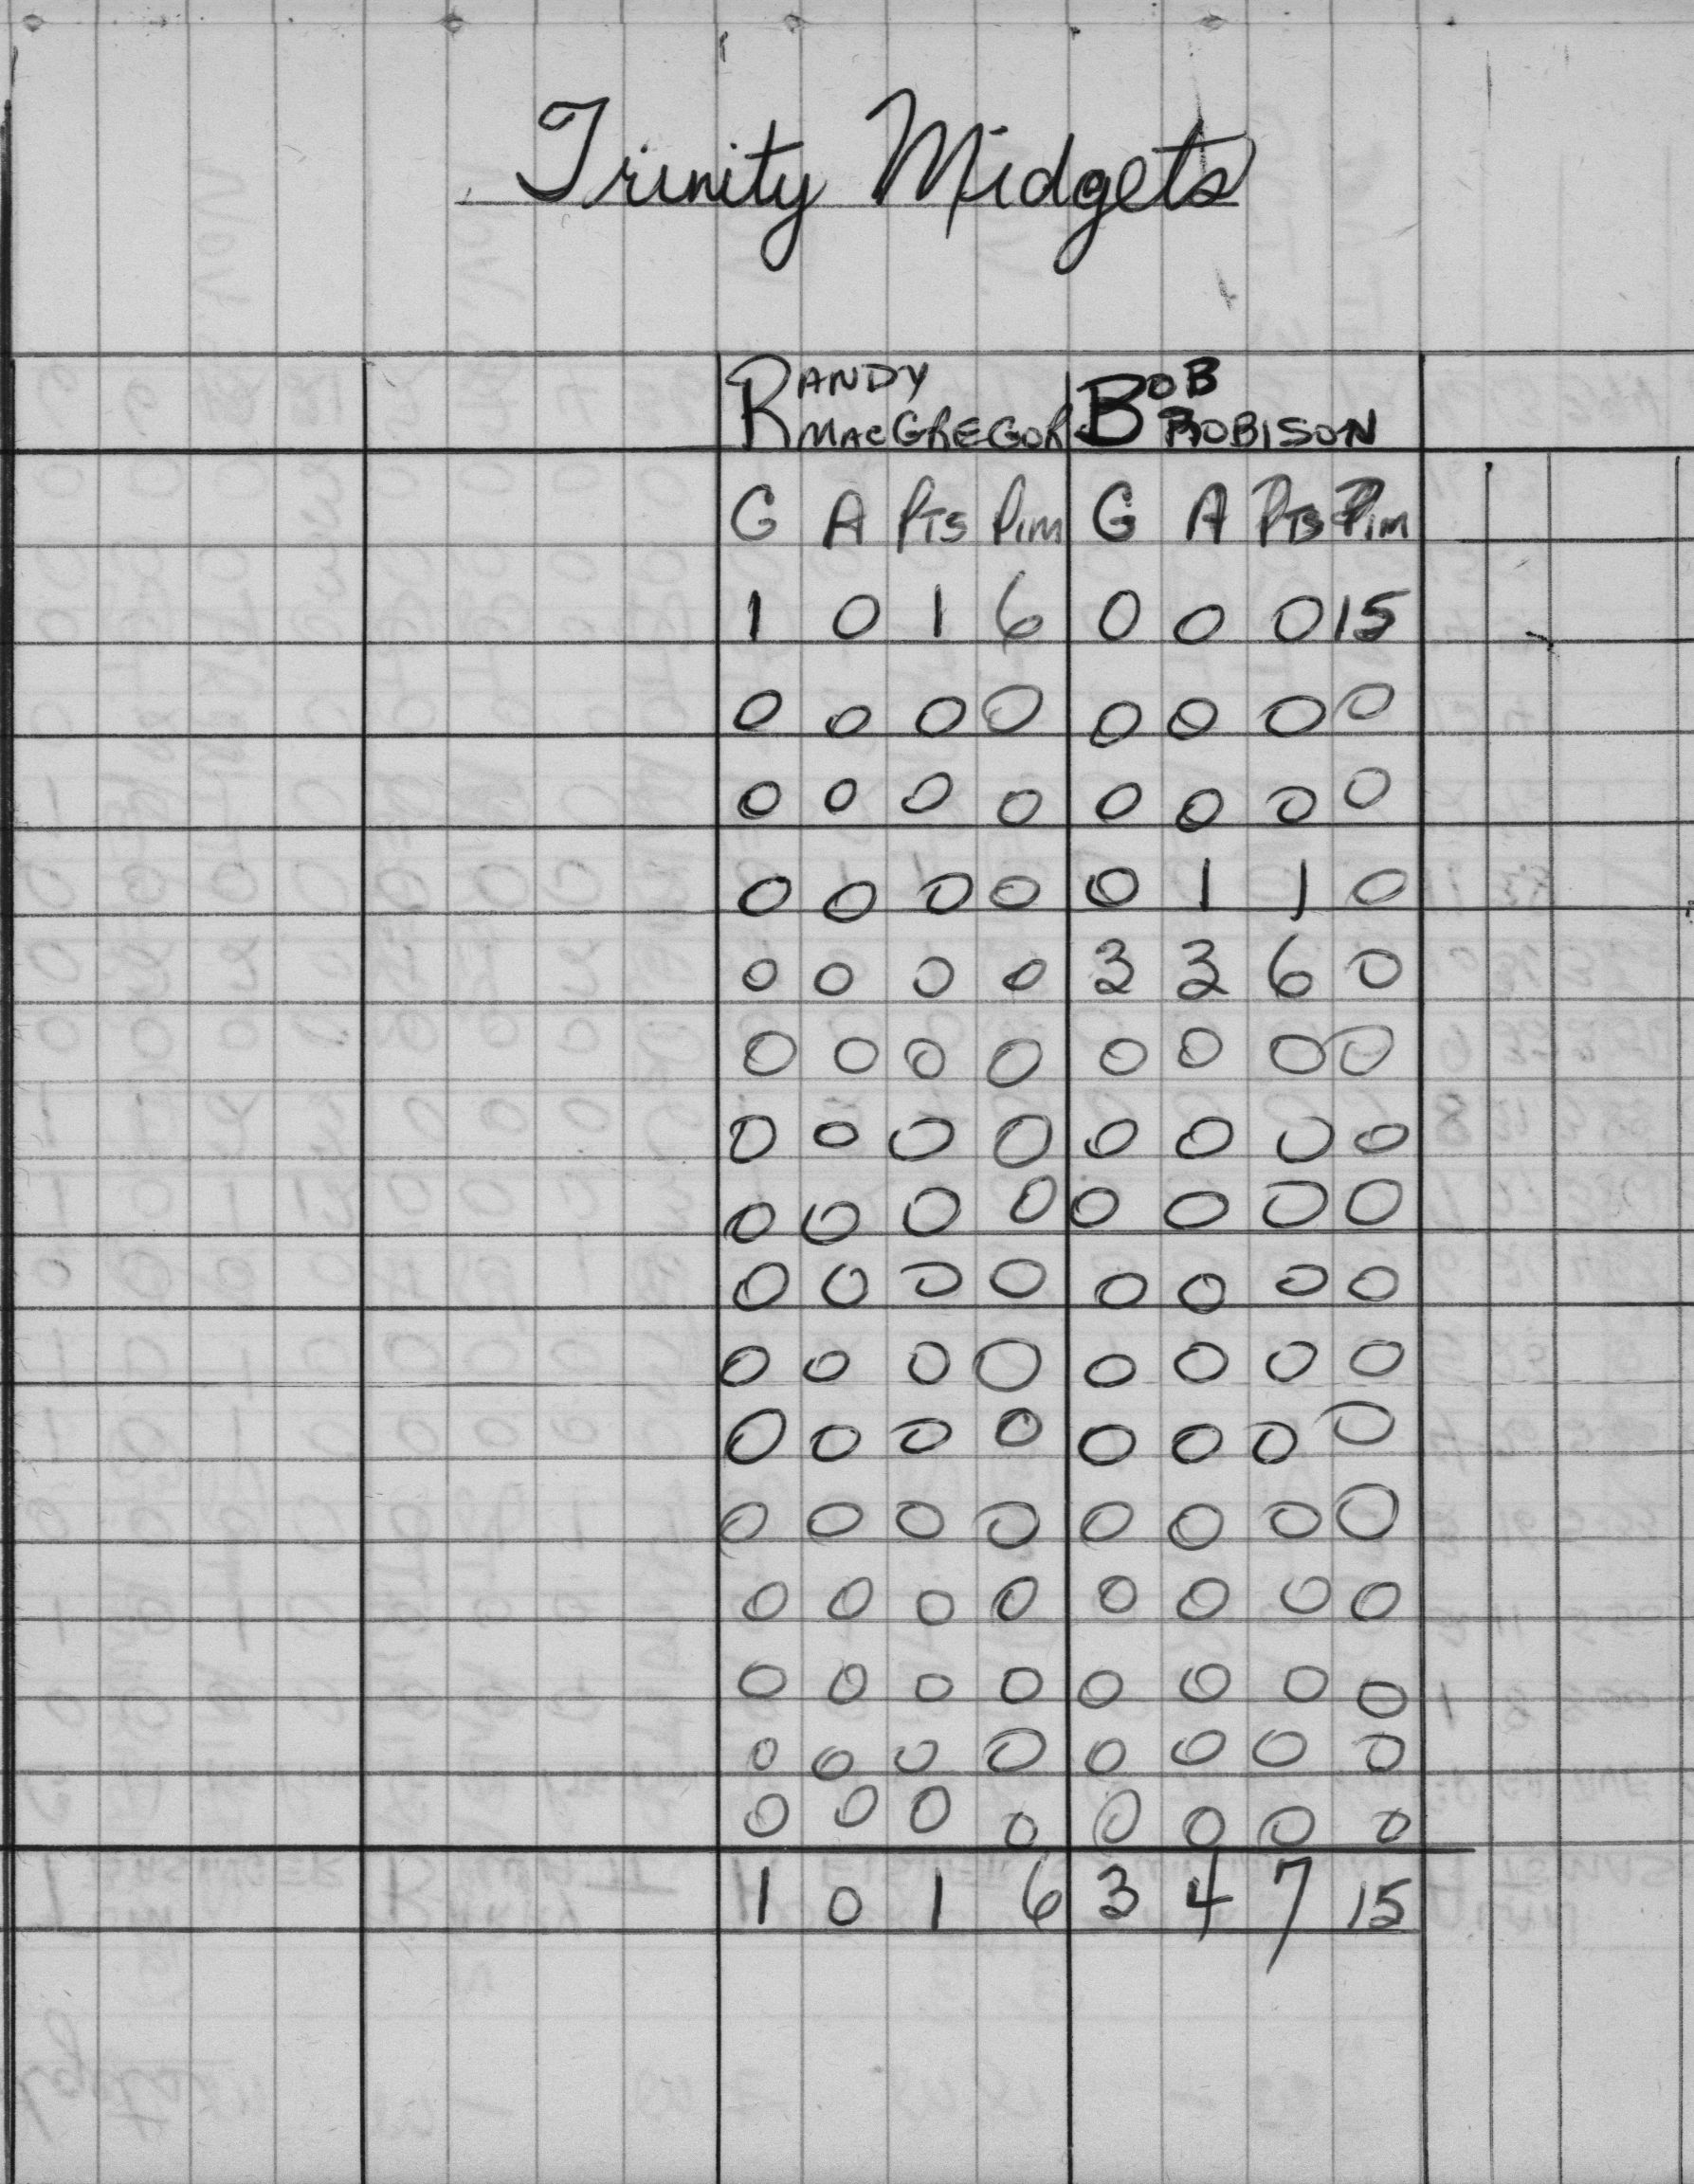 Trinity Midgets
RANDY BOB
MACGREGOR ROBISON
G A PTS PIM G A PTS PIM
1 0 1 6 0 0 0 15
0 0 0 0 0 0 0 0
0 0 0 0 0 0 0 0
0 0 0 0 0 1 1 0
0 0 0 0 3 3 6 0
0 0 0 0 0 0 0 0
0 0 0 0 0 0 0 0
0 0 0 0 0 0 0 0
0 0 0 0 0 0 0 0
0 0 0 0 0 0 0 0
0 0 0 0 0 0 0 0
0 0 0 0 0 0 0 0
0 0 0 0 0 0 0 0
0 0 0 0 0 0 0 0
0 0 0 0 0 0 0 0
0 0 0 0 0 0 0 0
1 0 1 6 3 4 7 15